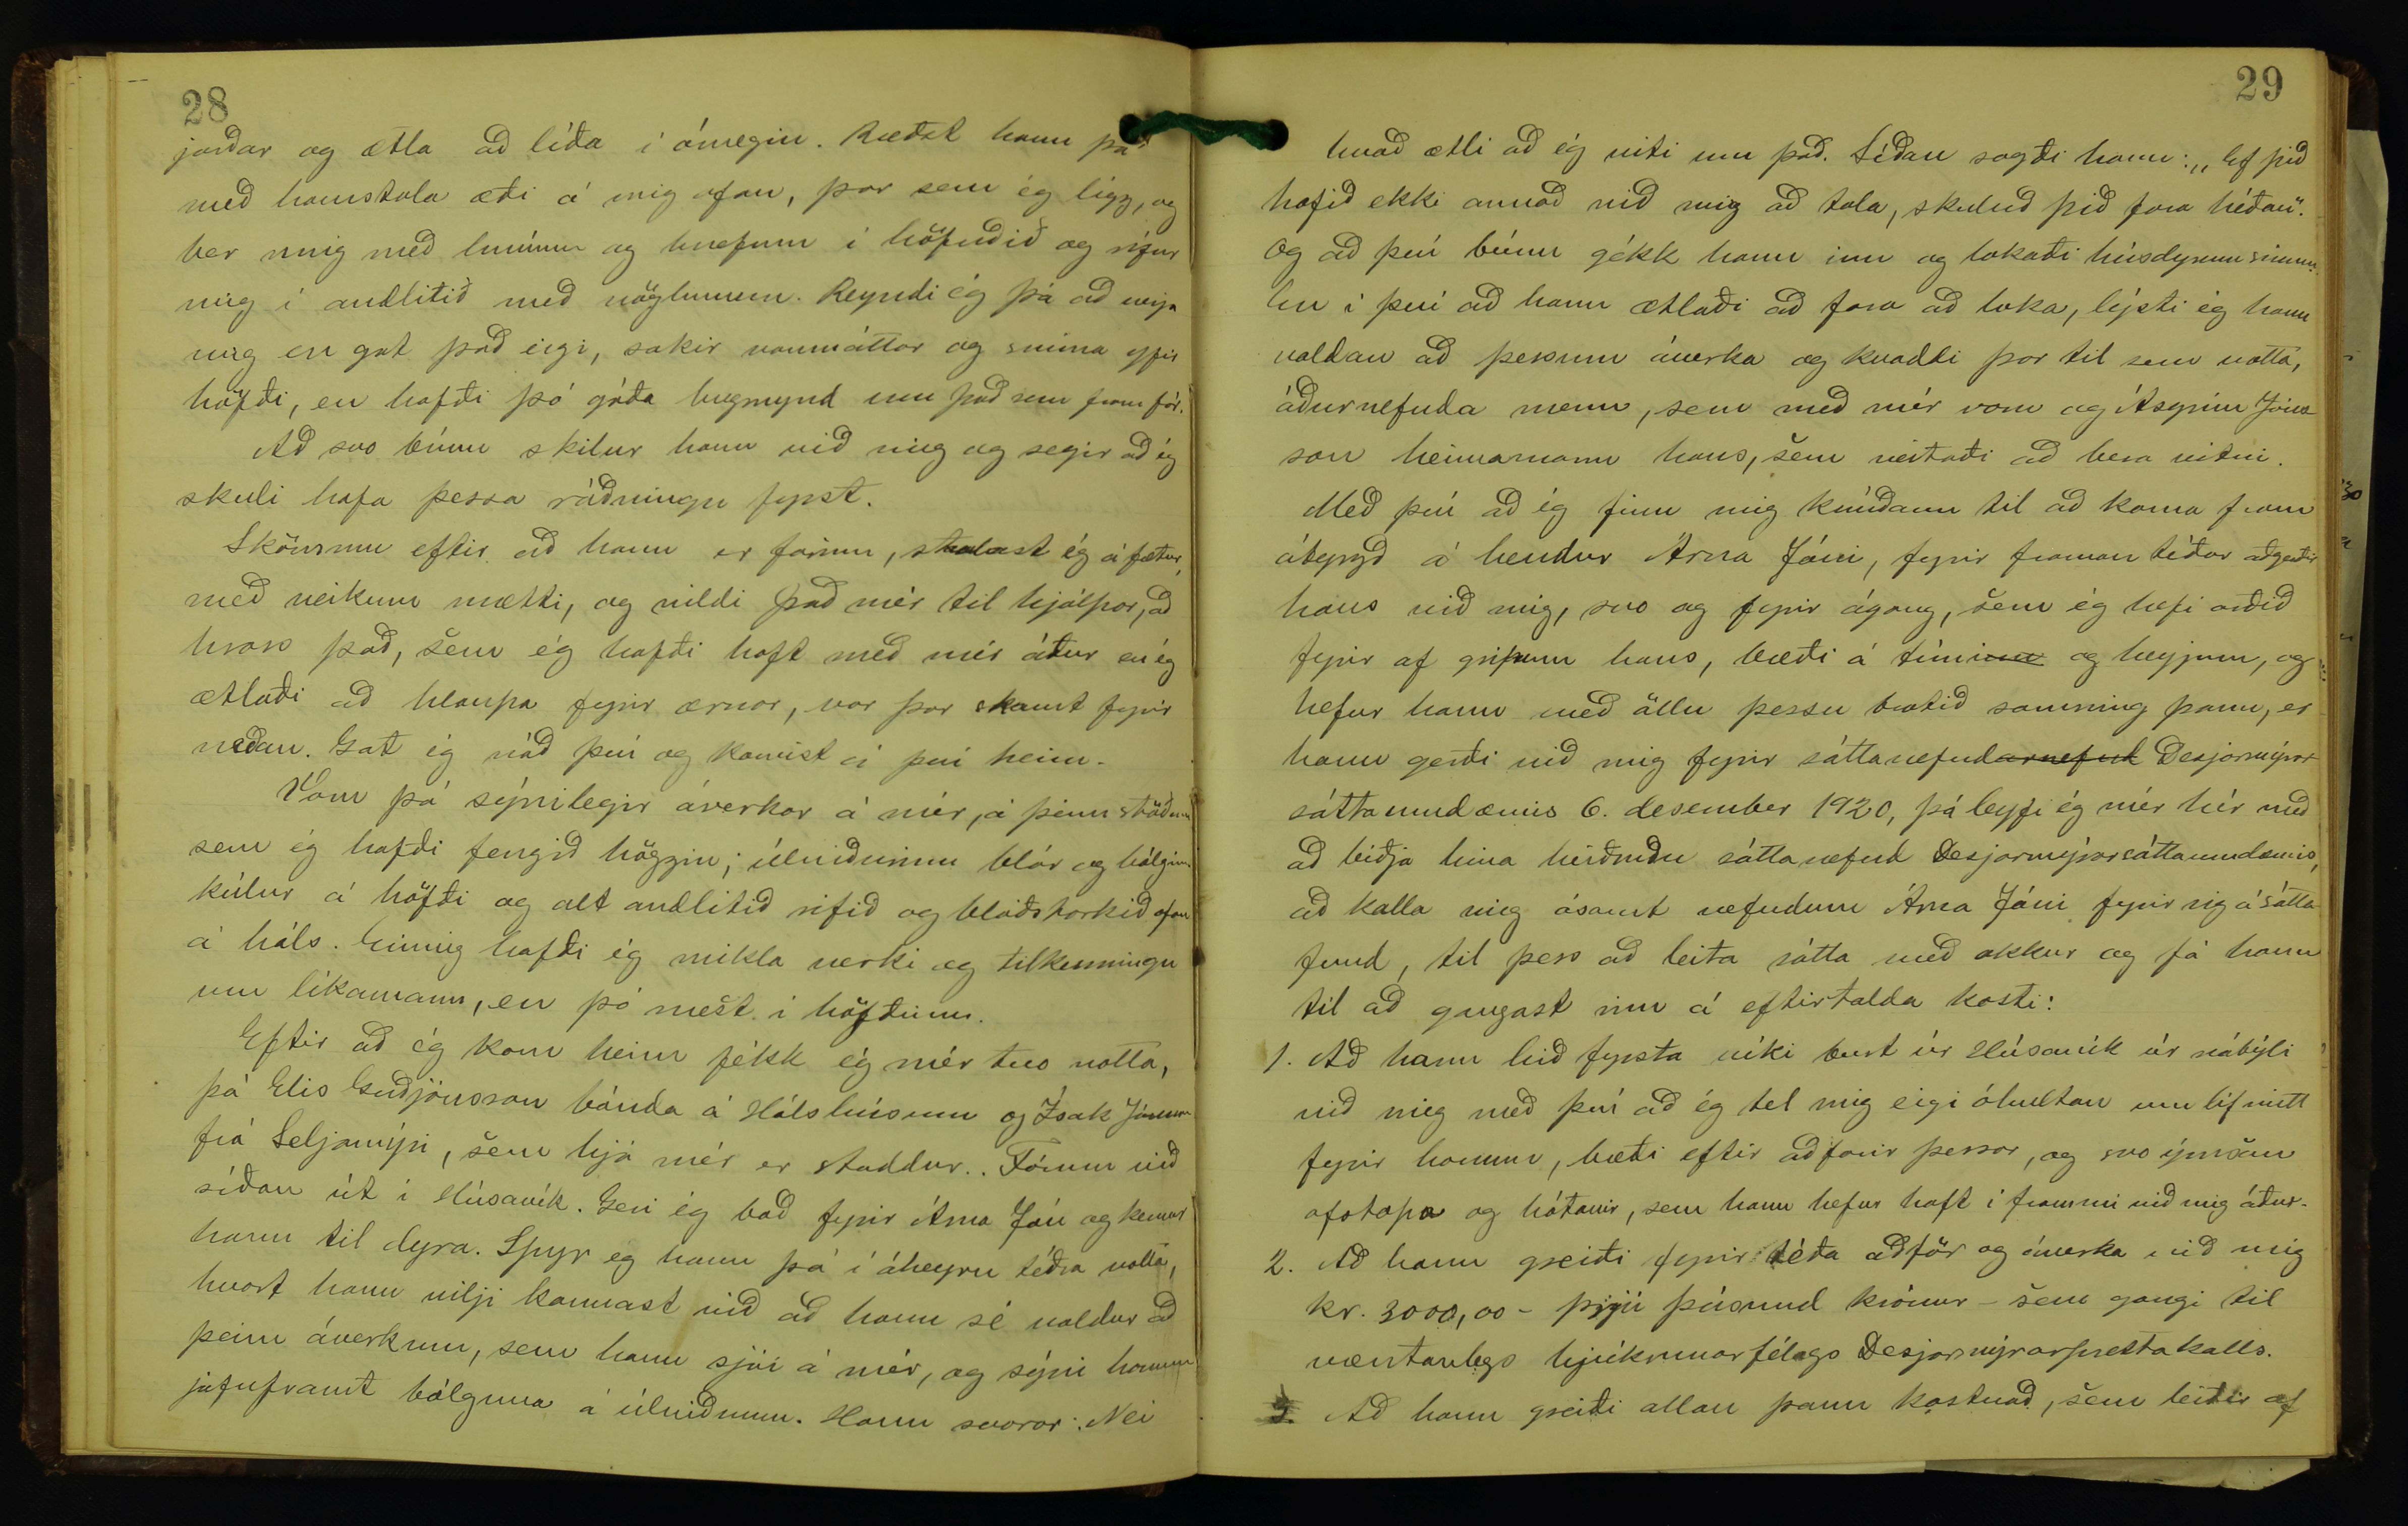 28
jarðar og ætla að líða í ómegin. Ræðst hann þá
með hamstola æði á mig ofan, þar sem ég ligg, og
ber mig með hnúum og hnefum í höfuðið og rífur
mig í andlitið með nöglunum. Reyndi ég þá að verja
mig en gat það eigi, sakir vanmáttar og svima yfir
höfði, en hafði þó góða hugmynd um það sem fram fór.
Að svo búnu skilur hann við mig og segir að ég
skuli hafa þessa ráðningu fyrst.
Skömmu eftir að hann er farinn, staulast ég á fætur,
með veikum mætti, og vildi það mér til hjálpar, að
hross það, sem ég hafði haft með mér áður en ég
ætlaði að hlaupa fyrir ærnar, var þar skamt fyrir
neðan. Gat ég náð því og komist á því heim.
Vóru þá sýnilegir áverkar á mér, á þeim stöðum
sem ég hafði fengið höggin; úlniðurinn blár og bólginn.
kúlur á höfði og alt andlitið rifið og blóðstorkið ofan
á háls. Einnig hafði ég mikla verki og tilkenningu
um líkamann, en þó mest í höfðinu.
Eftir að ég kom heim fékk ég mér tvo votta,
þá Elis Guðjónsson bónda á Hálshúsum og Ísak Jónsson
frá Seljamýri, sem hjá mér er staddur. Fórum við
síðan út í Húsavík. Geri ég boð fyrir Árna Jón og kemur
hann til dyra. Spyr eg hann þá í áheyrn téðra votta,
hvort hann vilji kannast við að hann sé valdur að
þeim áverkum, sem hann sjái á mér, og sýni honum
jafnframt bólguna á úlniðnum. Hann svarar: Nei
29
hvað ætli að ég viti um það. Síðan sagði hann: „Ef þið
hafið ekki annað við mig að tala, skuluð þið fara héðan".
Og að því búnu gékk hann inn og lokaði húsdyrum sínum.
En í því að hann ætlaði að fara að loka, lýsti ég hann
valdan að þessum áverka og kvaddi þar til sem votta,
áðurnefnda menn, sem með mér voru og Ásgrím Jóns-
son heimamann hans, sem neitaði að bera vitni.
Með því að ég finn mig knúðann til að koma fram
ábyrgð á hendur Árna Jóni, fyrir framan téðar aðgerðir
hans við mig, svo og fyrir ágang, sem ég hefi orðið
fyrir af gripum hans, bæði á túninu og heyjum, og
hefur hann með öllu þessu brotið samning þann, er
hann gerði við mig fyrir sáttanefndarnefnd Desjarmýrar
sáttaumdæmis 6. desember 1920, þá leyfi ég mér hér með
að biðja hina heiðruðu sáttanefnd Desjarmýrarsáttaumdæmis,
að kalla mig ásamt nefndum Árna Jóni fyrir sig á sátta-
fund, til þess að leita sátta með okkur og fá hann
til að gangast inn á eftirtalda kosti:
1. Að hann hið fyrsta víki burt úr Húsavík úr nábýli
við mig með því að ég tel mig eigi óhultan um líf mitt
fyrir honum, bæði eftir aðfarir þessar, og svo ýmsan
ofstopa og hótanir, sem hann hefur haft í frammi við mig áður.
2. Að hann greiði fyrir téða aðför og áverka við mig
kr. 3000,00 - þrjú þúsund krónur - sem gangi til
væntanlegs hjúkrunarfélags Desjarmýrarprestakalls.
3. Að hann greiði allan þann kostnað, sem leiðir af